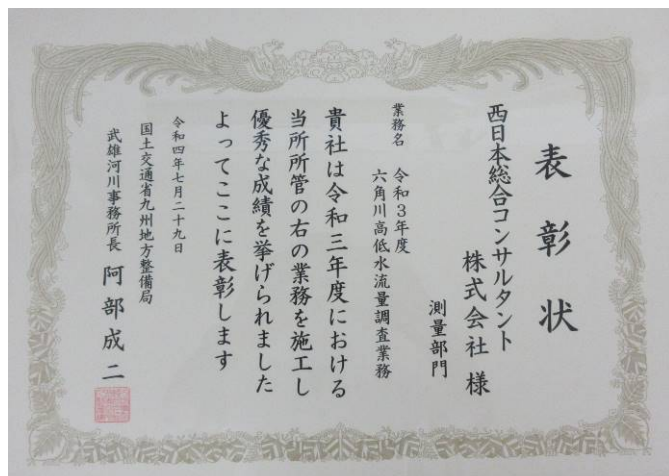 表彰状
西日本総合コンサルタント
株式会社 様
測量部門
業務名 令和3年度
六角川高低水流量調査業務
貴社は令和三年度における
当所所管の右の業務を施工し
優秀な成績を挙げられました
よってここに表彰します
令和四年七月二十九日
国土交通省九州地方整備局
武雄河川事務所長 阿部成二